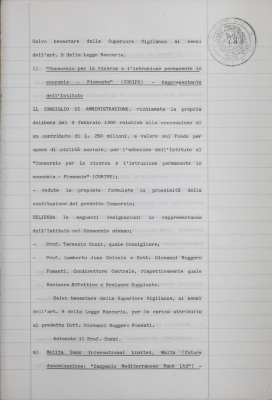 Salvo benestare della Superiore Vigilanza ai sensi
dell'art. 9 della Legge Bancaria.
"Consorzio per la ricerca e l'istruzione permanente in
economia - Piemonte" (CORIPE) - Rappresentante
dell'Istituto
IL CONSIGLIO DI AMMINISTRAZIONE, richiamata la propria
delibera del 9 febbraio 1990 relativa alla concessione di
un contributo di L. 250 milioni, a valere sul Fondo per
opere di utilità sociale, per l'adesione dell'Istituto al
"Consorzio per la ricerca e l'istruzione permanente in
economia - Piemonte" (CORIPE);
- vedute le proposte formulate in prossimità della
costituzione del predetto Consorzio;
DELIBERA le seguenti designazioni in rappresentanza
dell'Istituto nel Consorzio stesso:
- Prof. Terenzio Cozzi, quale Consigliere;
- Prof. Lamberto Jona Celesia e Dott. Giovanni Ruggero
Fumasti, Condirettore Centrale, rispettivamente quale
Revisore Effettivo e Revisore Supplente.
Salvo benestare della Superiore Vigilanza, ai sensi
dell'art. 9 della Legge Bancaria, per la carica attribuita
al predetto Dott. Giovanni Ruggero Fumasti.
Astenuto il Prof. Cozzi.
Melita Bank International Limited, Malta (futura
denominazione: "Sanpaolo Mediterranean Bank Ltd") -